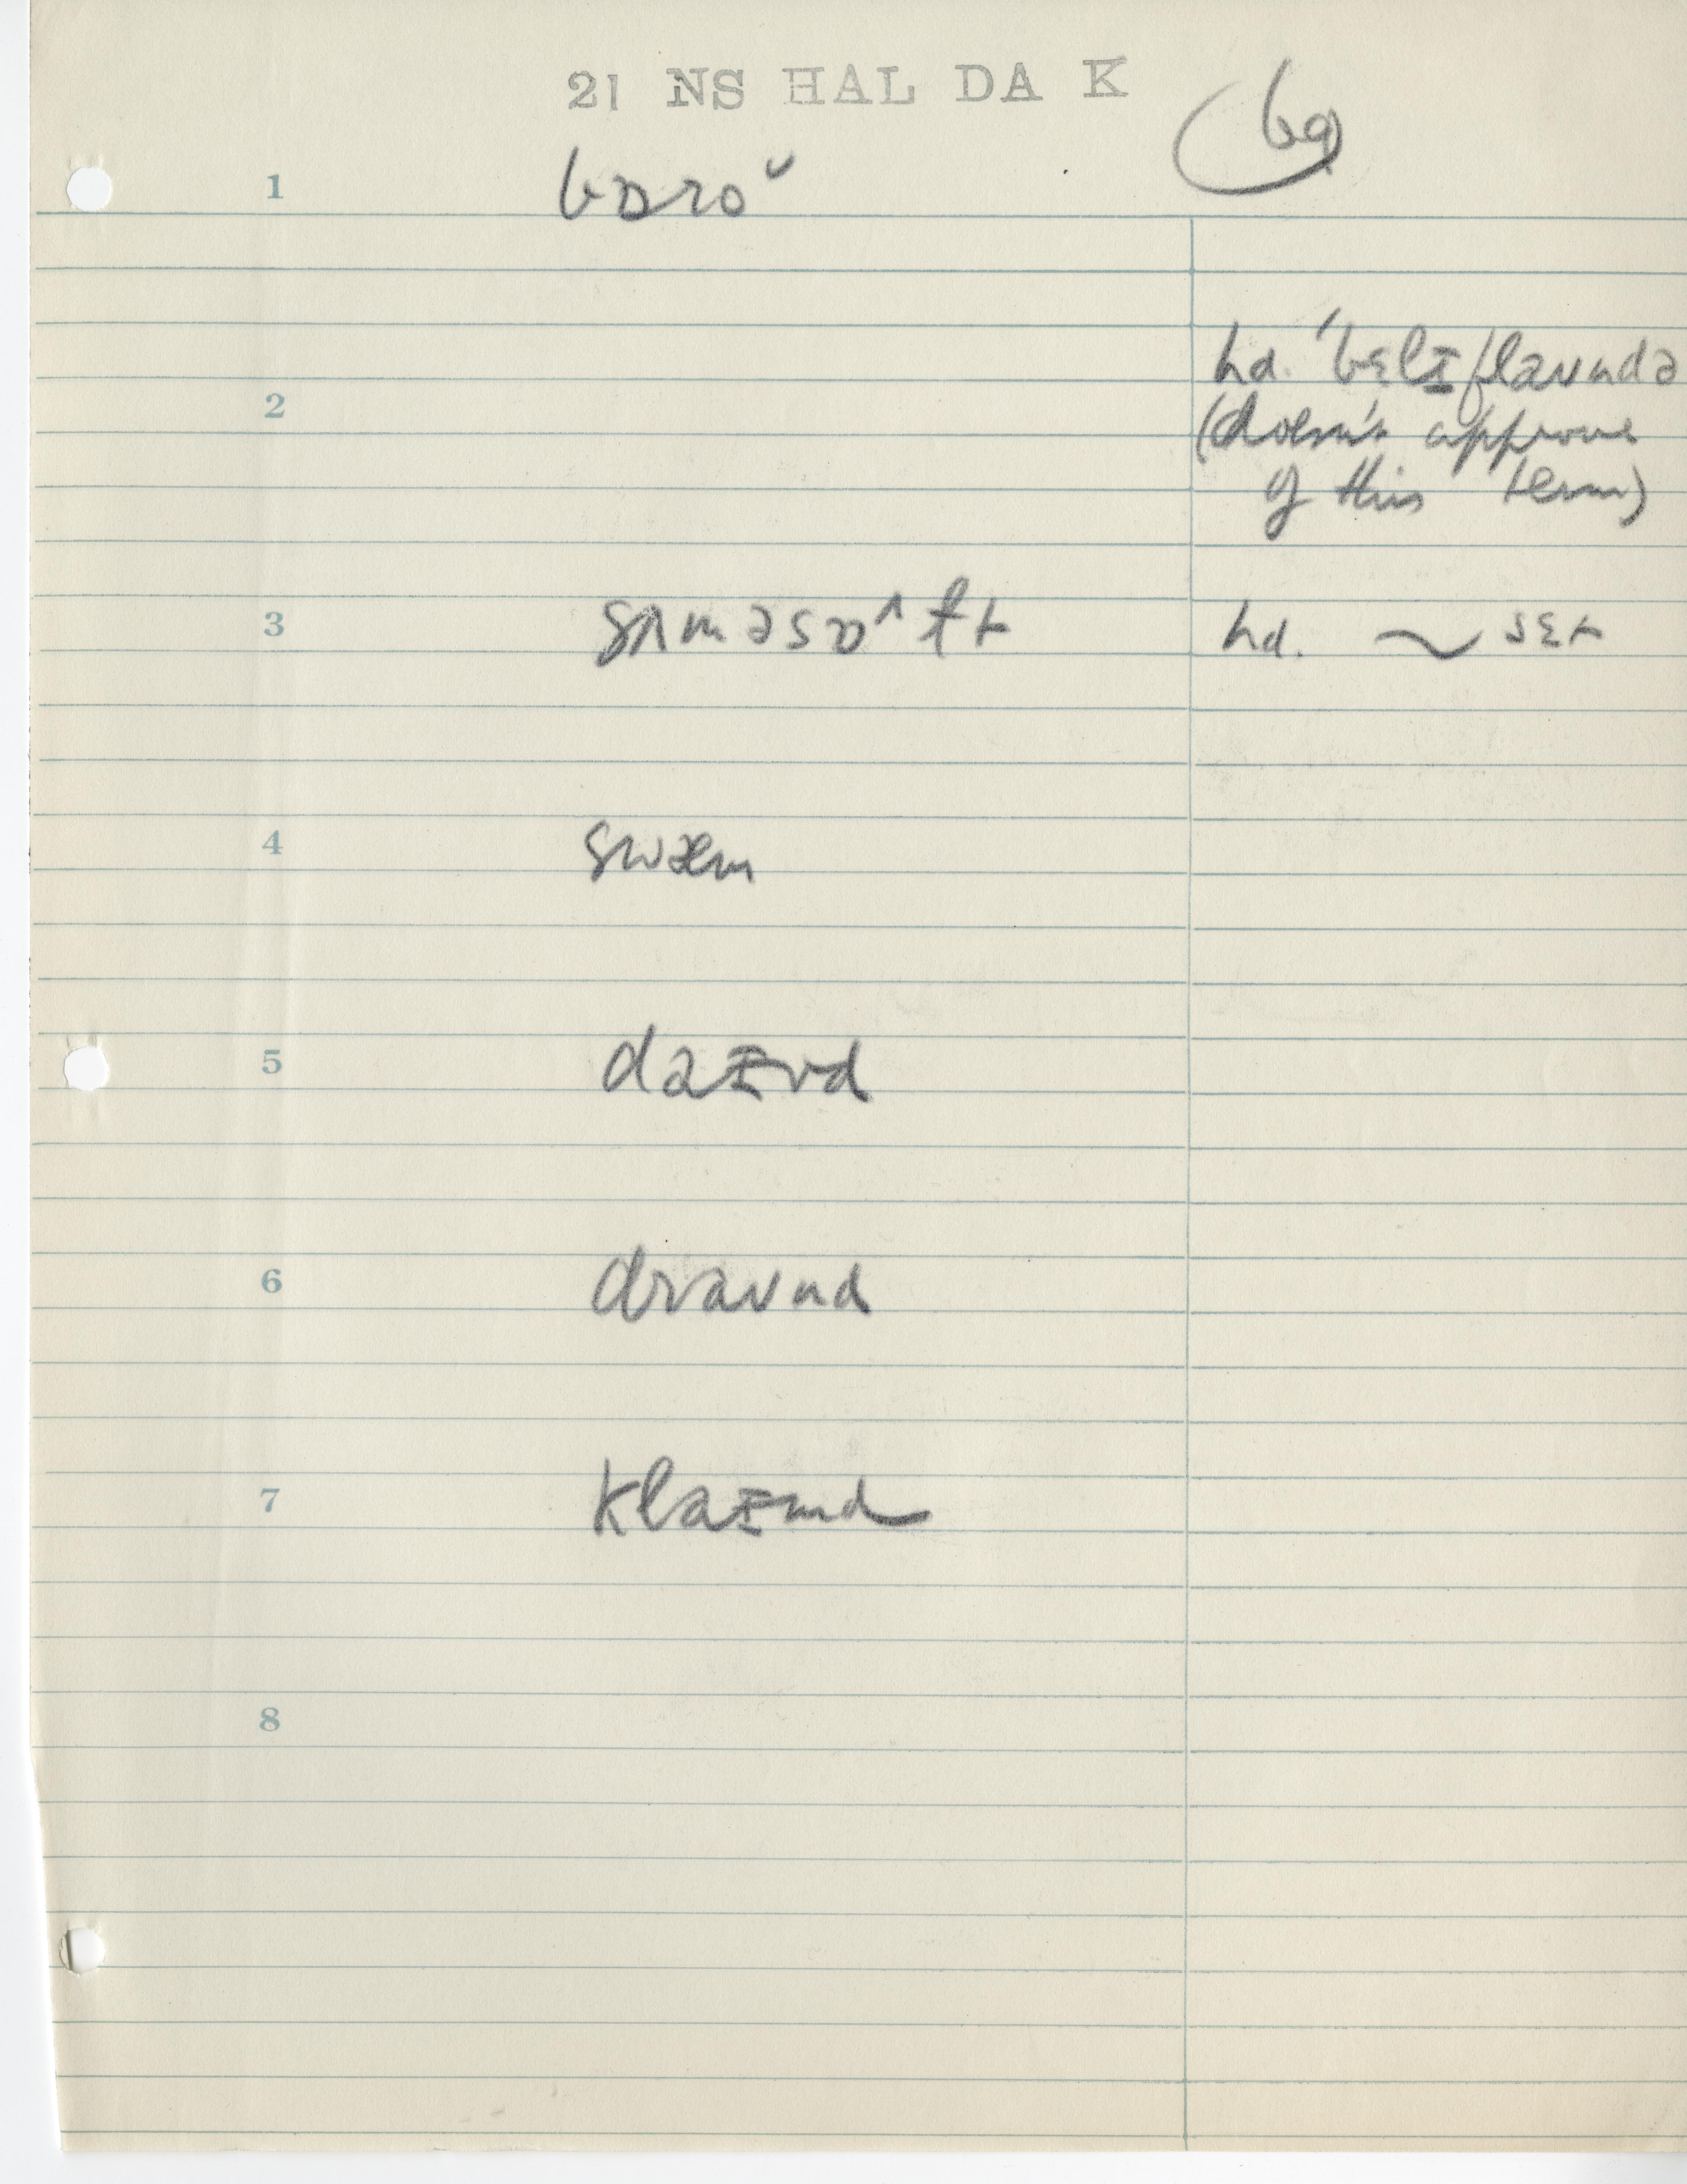 21 NS HAL DA K
69
1 bɒro˘
2 hd. ˈbɛlɪflaʊndə
(doesn't approve
of this term)
3 sʌməsɒ^ɫt hd. ~ sɛt
4 swæm
5 daɪvd
6 draʊnd
7 klaɪmd
8